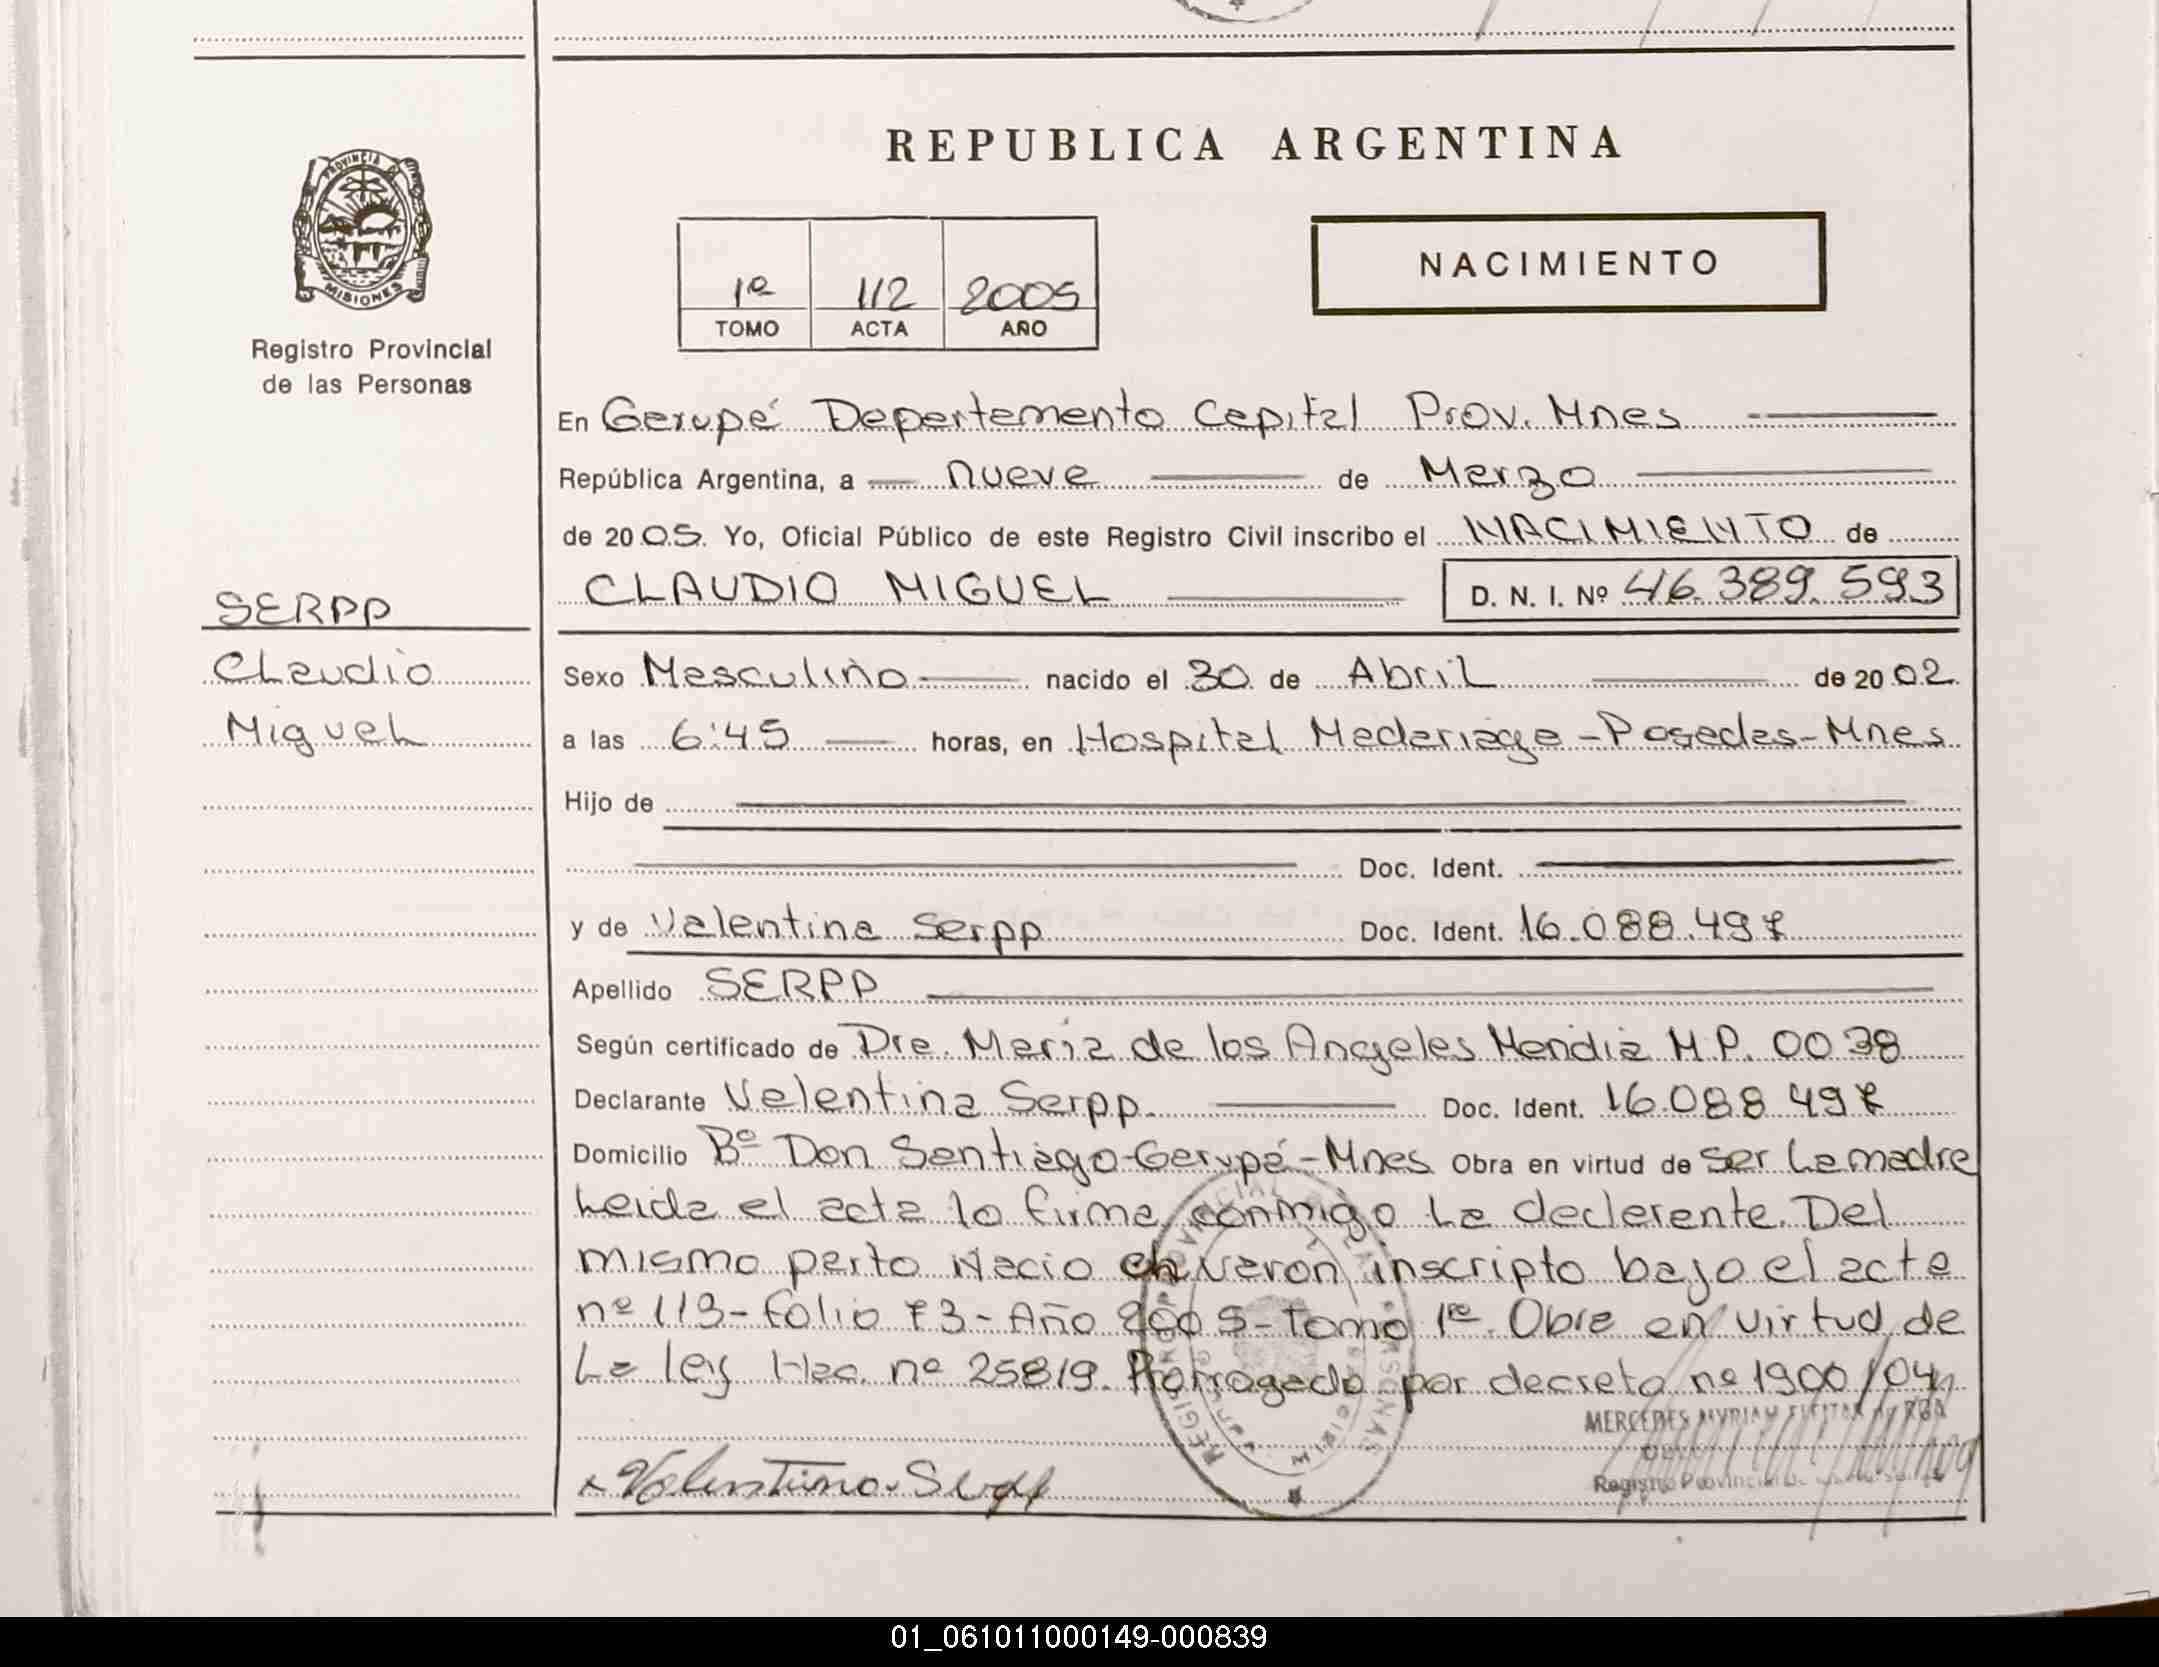 REPUBLICA ARGENTINA
PROVINCIA DE
MISIONES
Registro Provincial
de las Personas
1º 112 2005
TOMO ACTA AÑO
NACIMIENTO
En Garupá Departamento Capital Prov. Mnes
República Argentina, a nueve de Marzo
de 2005. Yo, Oficial Público de este Registro Civil inscribo el NACIMIENTO de
CLAUDIO MIGUEL D. N. I. Nº 46.389.593
SERPP
Claudio
Miguel
Sexo Masculino nacido el 30 de Abril de 2002
a las 6:45 horas, en Hospital Madariaga - Posadas - Mnes
Hijo de
Doc. Ident.
y de Valentina Serpp Doc. Ident. 16.088.497
Apellido SERPP
Según certificado de Dra. María de los Angeles Mendia M.P. 0038
Declarante Valentina Serpp. Doc. Ident. 16.088 497
Domicilio Bº Don Santiago - Garupá - Mnes Obra en virtud de ser La madre
Leida el acta lo firma conmigo La declarante. Del
mismo parto Nacio un varon inscripto bajo el acta
nº 113 - folio 73 - Año 2005 - Tomo 1º Obra en virtud de
La ley Nac. nº 25819. Prorrogado por decreto nº 1900/04
MERCEDES MYRIAM
Registro Provincial de
Valentina Serpp
01_061011000149-000839